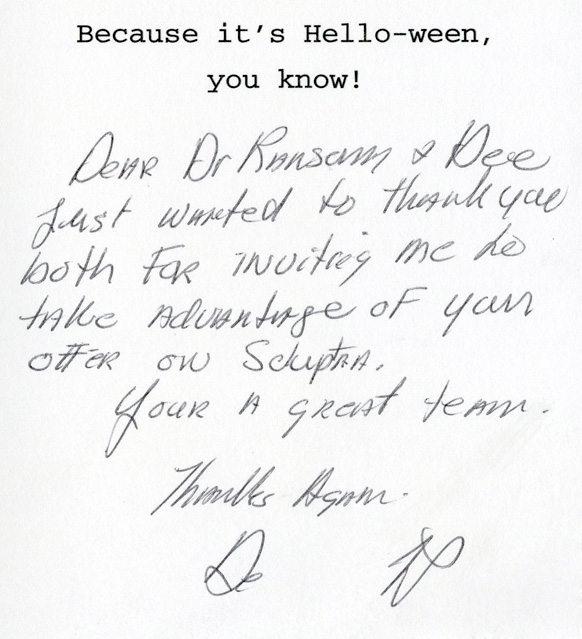 Because it's Hello-ween,
you know!
Dear Dr Ransom & Dee
Just wanted to thank you
both for inviting me to
take advantage of your
offer on Sculptra.
Your a great team.
Thanks Again.